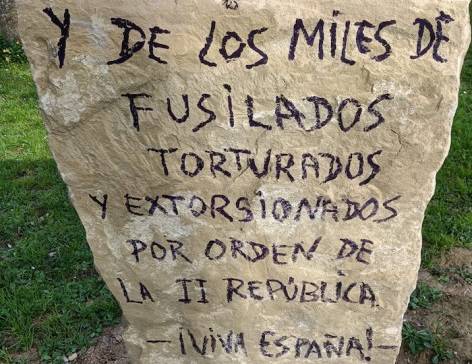 Y DE LOS MILES DE
FUSILADOS
TORTURADOS
Y EXTORSIONADOS
POR ORDEN DE
LA II REPÚBLICA
—¡VIVA ESPAÑA!—